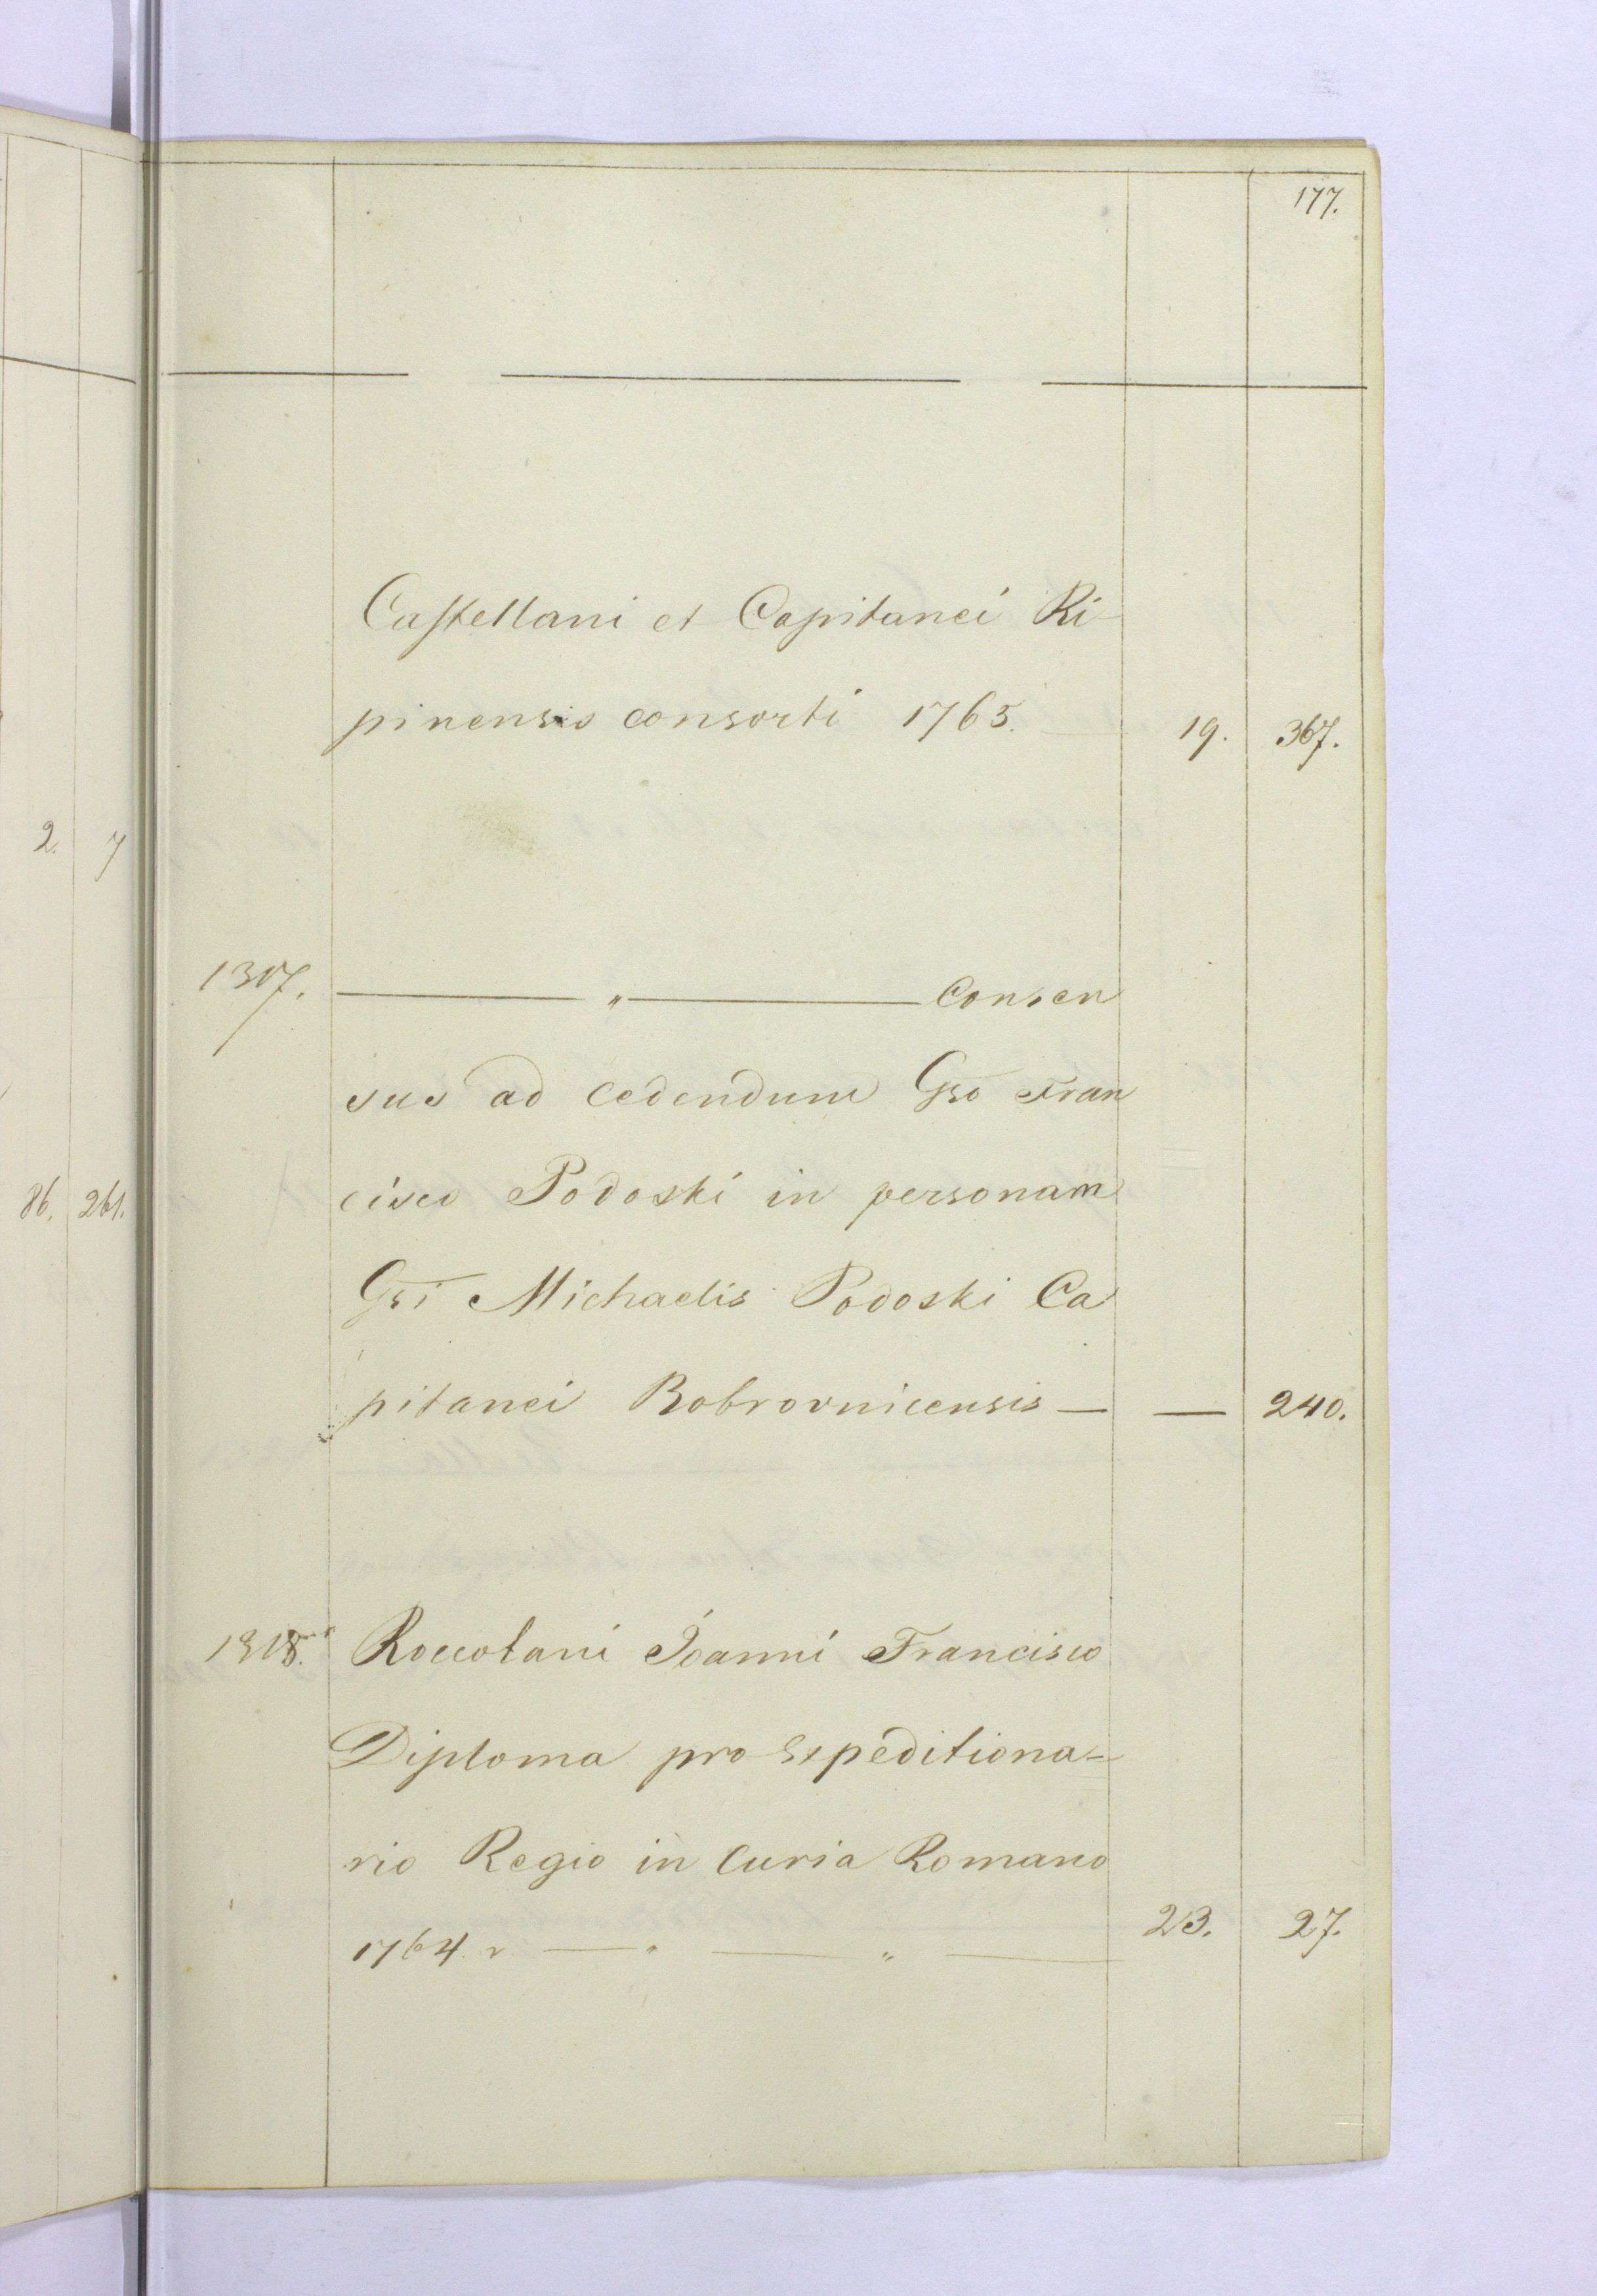 177.
Castellani et Capitanei Ri-
pinensis consorti 1765. 19. 367.
1307. — „ — Consen
sus ad cedendum Gso Fran
cisco Podoski in personam
Gsi Michaelis Podoski Ca
pitanei Bobrovnicensis — — 240.
Roccolani Joanni Francisco
Diploma pro Expeditiona=
rio Regio in Curia Romano
1764 r — „ — „ — 23. 27.
2. 7
86. 261.